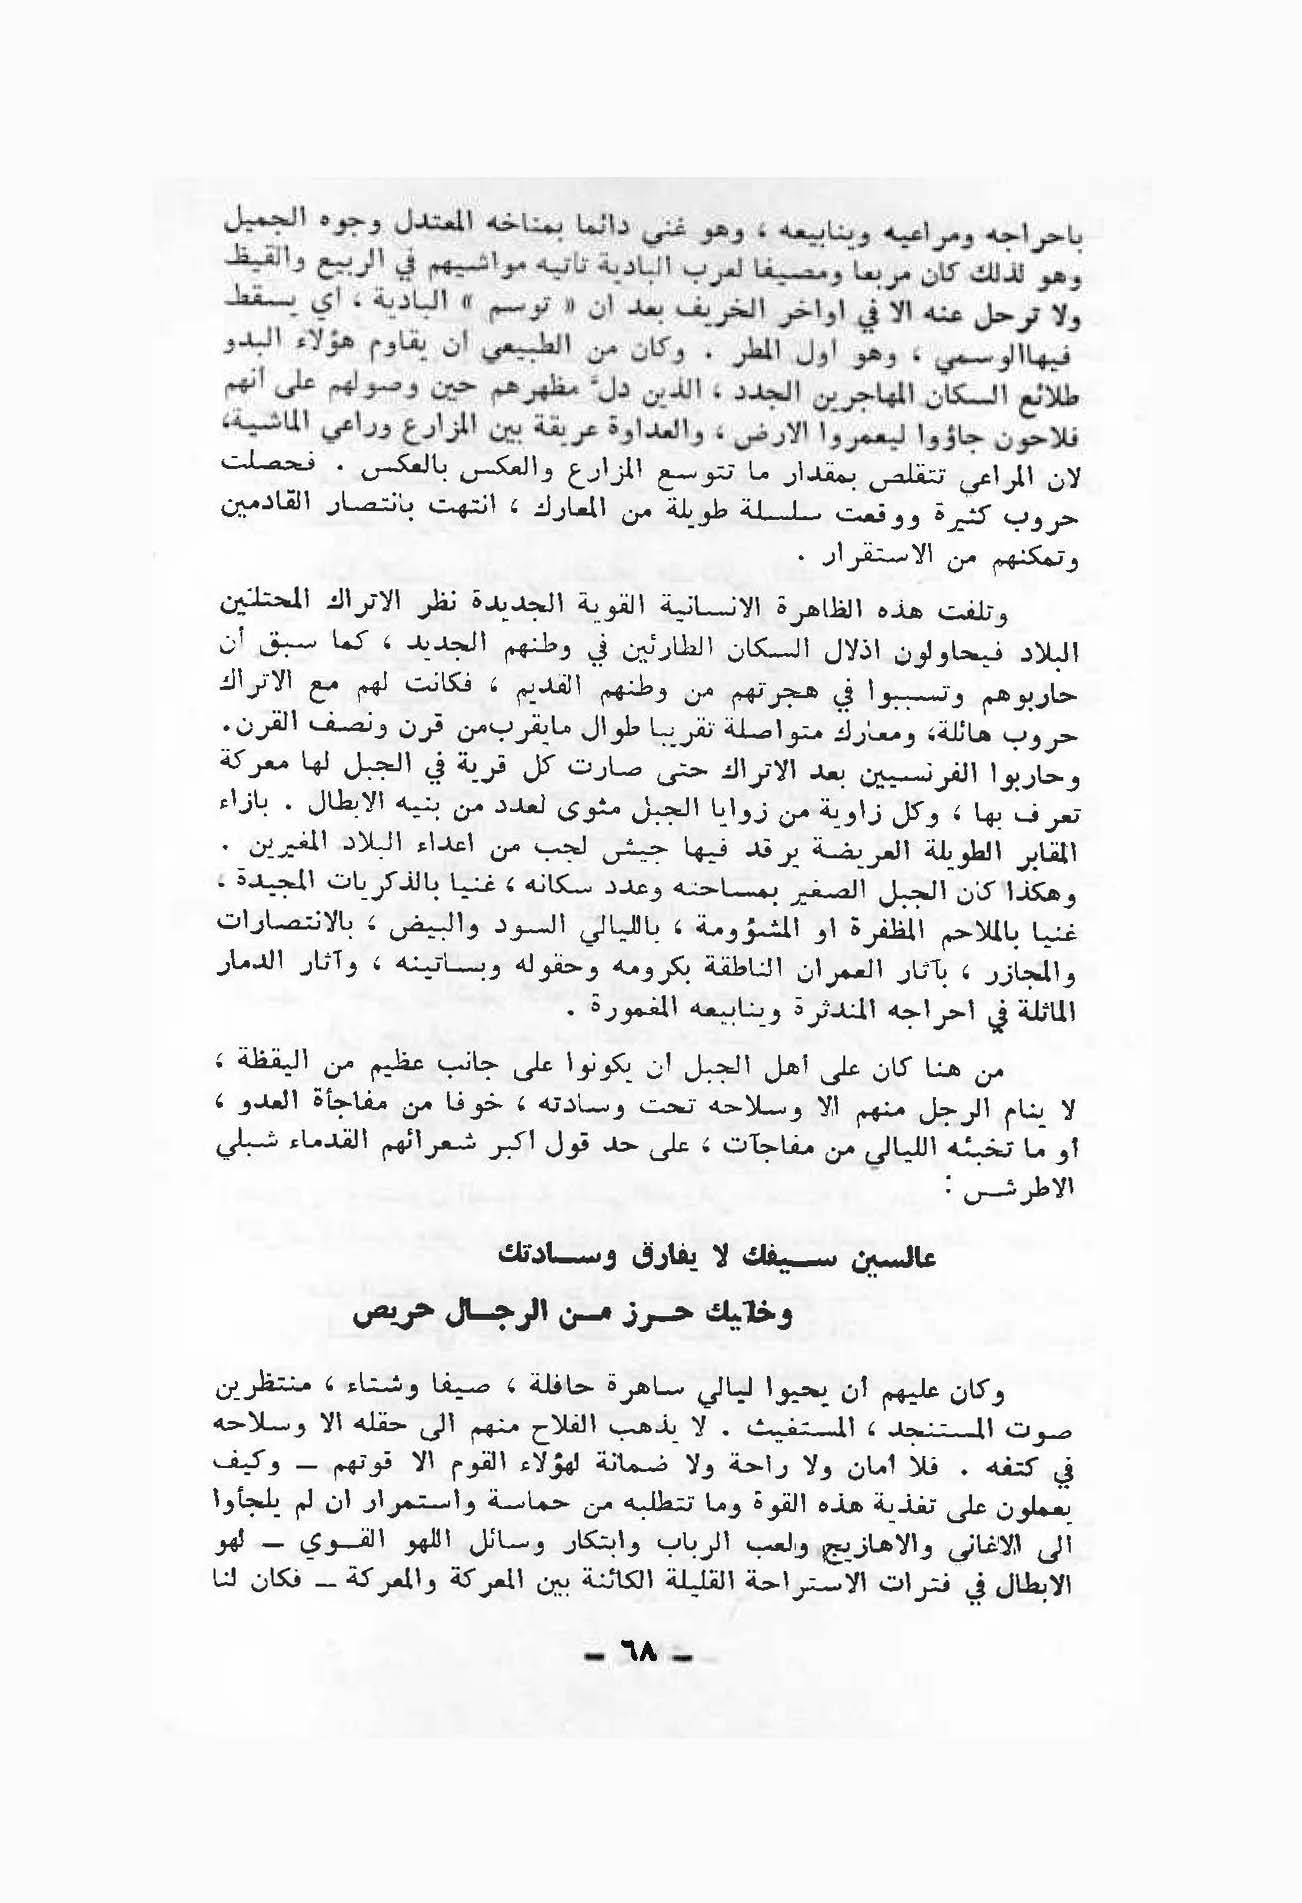 باحراجه ومراعيه وينابيعه ، وهو غني دائما بمناخه المعتدل وجوه الجميل
وهو لذلك كان مربعا ومصيفا لعرب البادية تاتيه مواشيهم في الربيع والقيظ
ولا ترحل عنه الا في اواخر الخريف بعد ان « توسم » البادية ، اي يسقط
فيهاالوسمي ، وهو اول المطر . وكان من الطبيعي ان يقاوم هؤلاء البدو
طلائع السكان المهاجرين الجدد ، الذين دلّ مظهرهم حين وصولهم على انهم
فلاحون جاؤوا ليعمروا الارض ، والعداوة عريقة بين المزارع وراعي الماشية،
لان المراعي تتقلص بمقدار ما تتوسع المزارع والعكس بالعكس . فحصلت
حروب كثيرة ووقعت سلسلة طويلة من المعارك ، انتهت بانتصار القادمين
وتمكنهم من الاستقرار .
وتلفت هذه الظاهرة الانسانية القوية الجديدة نظر الاتراك المحتلين
البلاد فيحاولون اذلال السكان الطارئين في وطنهم الجديد ، كما سبق أن
حاربوهم وتسببوا في هجرتهم من وطنهم القديم ، فكانت لهم مع الاتراك
حروب هائلة، ومعارك متواصلة تقريبا طوال مايقرب من قرن ونصف القرن.
وحاربوا الفرنسيين بعد الاتراك حتى صارت كل قرية في الجبل لها معركة
تعرف بها ، وكل زاوية من زوايا الجبل مثوى لعدد من بنيه الابطال . بازاء
المقابر الطويلة العريضة يرقد فيها جيش لجب من اعداء البلاد المغيرين .
وهكذا كان الجبل الصغير بمساحته وعدد سكانه ، غنيا بالذكريات المجيدة .
غنيا بالملاحم المظفرة او المشؤومة ، بالليالي السود والبيض ، بالانتصارات
والمجازر ، بآثار العمران الناطقة بكرومه وحقوله وبساتينه ، وآثار الدمار
الماثلة في احراجه المندثرة وينابيعه المغمورة .
من هنا كان على أهل الجبل ان يكونوا على جانب عظيم من اليقظة ،
لا ينام الرجل منهم الا وسلاحه تحت وسادته ، خوفا من مفاجأة العدو ،
أو ما تخبئه الليالي من مفاجآت ، على حد قول أكبر شعرائهم القدماء شبلي
الاطرش :
عالسين سيفك لا يفارق وسادتك
وخليك حرز من الرجال حريص
وكان عليهم ان يحيوا ليالي ساهرة حافلة ، صيفا وشتاء ، منتظرين
صوت المستنجد ، المستغيث . لا يذهب الفلاح منهم الى حقله الا وسلاحه
في كتفه . فلا أمان ولا راحة ولا ضمانة لهؤلاء القوم الا قوتهم – وكيف
يعملون على تغذية هذه القوة وما تتطلبه من حماسة واستمرار ان لم يلجأوا
الى الاغاني والاهازيج ولعب الرباب وابتكار وسائل اللهو القوي – لهو
الابطال في فترات الاستراحة القليلة الكائنة بين المعركة والمعركة – فكان لنا
– ٦٨ –